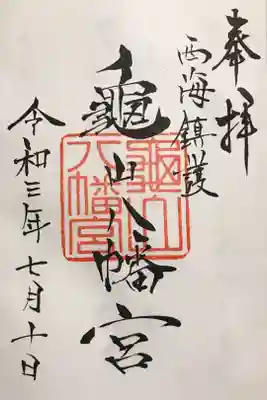 奉拝
西海鎮護
龜山八幡宮
龜山
八幡宮
令和三年七月十日